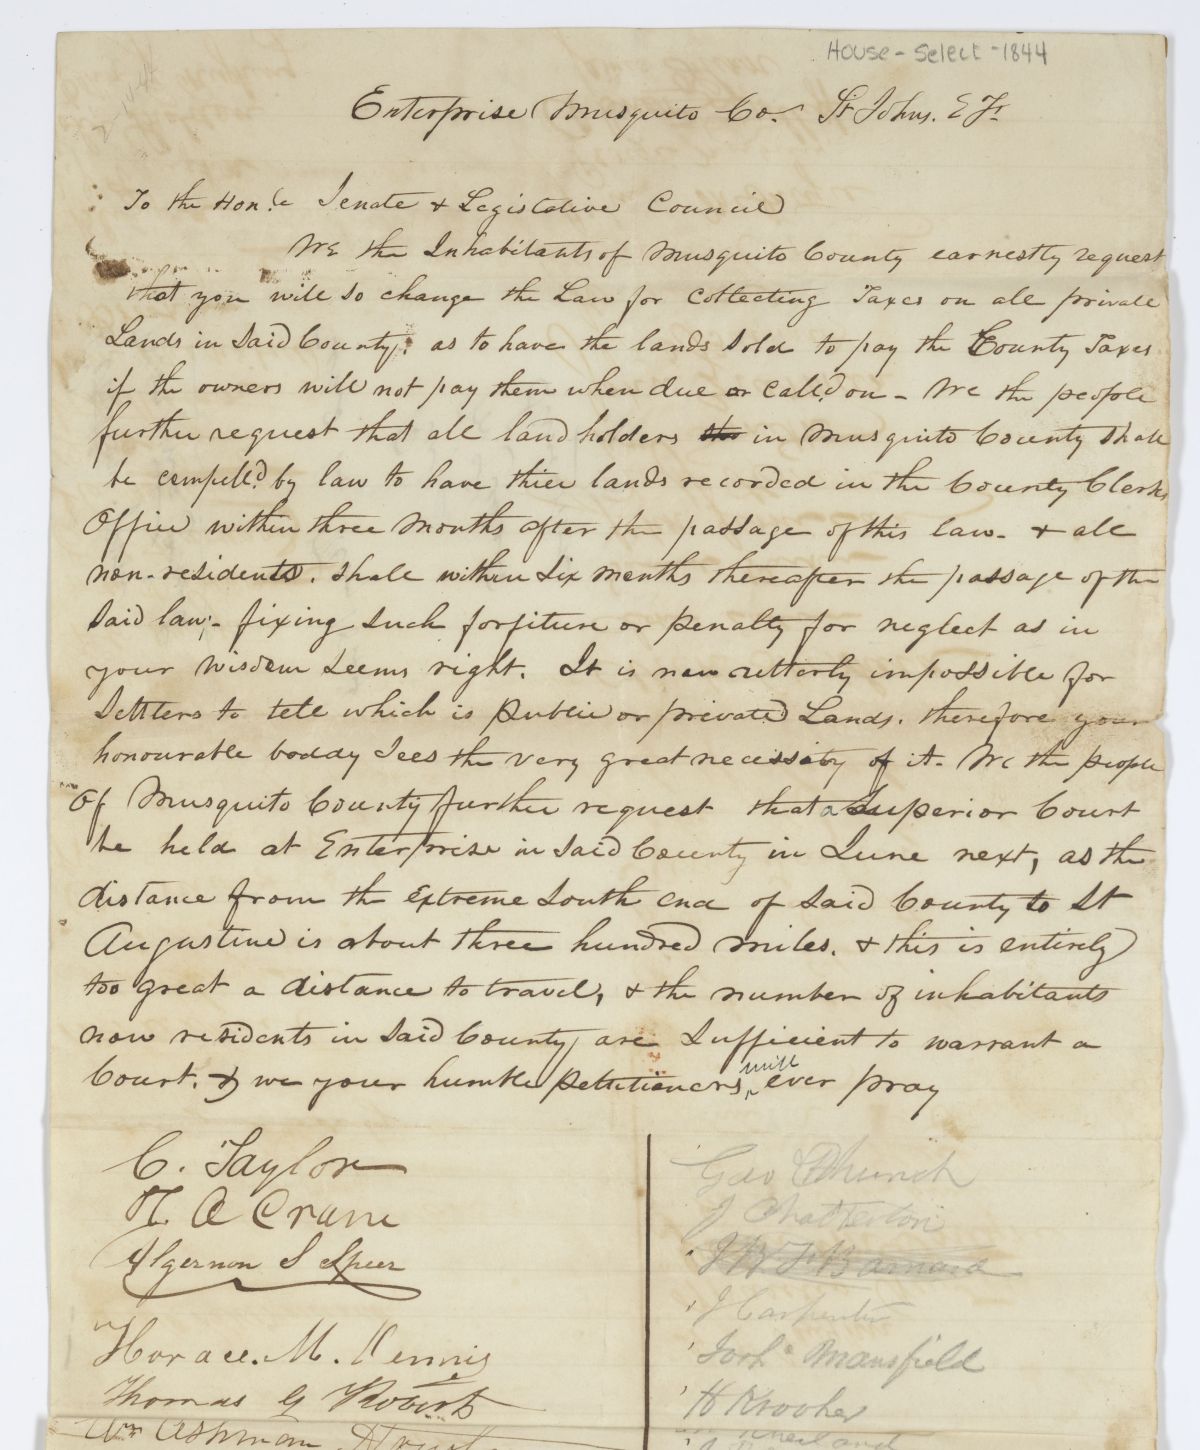 House - Select - 1844
Enterprise Musquito Co. St Johns. E F.
To the Hon.le Senate & Legistative Council
We the Inhabitants of Musquito County earnestly request
that you will so change the Law for Collecting Taxes on all private
Lands in Said County; as to have the lands Sold to pay the County Taxes
if the owners will not pay them when due or Call'd on - We the people
further request that all land holders in Musquito County Shall
be compell'd by law to have thier lands recorded in the County Clerks
Office within three Months after the passage of this law - & all
non-residents. Shall within Six Months thereafter the passage of the
Said law;- fixing Such forfiture or Penalty for neglect as in
your Wisdom Seems right. It is now utterly impossible for
Settlers to tell which is Public or private Lands. therefore your
honourable boddy Sees the very great necessity of it. We the people
Of Musquito County further request that a Superior Court
be held at Enterprise in Said County in June next, as the
distance from the Extreme South end of Said County to St
Augustine is about three hundred miles. & this is entirely
too great a distance to travel, & the number of inhabitants
now residents in Said County are Sufficient to warrant a
Court. & we your humble Petitioners, will ever pray
C. Taylor
H. A Crane
Algernon S Speer
Horace. M. Dennis
Thomas G Roberts
Wm Ashman
Geo Church
J Chatterton
J W F Barnard
J Carpenter
Mansfield
H Krooher